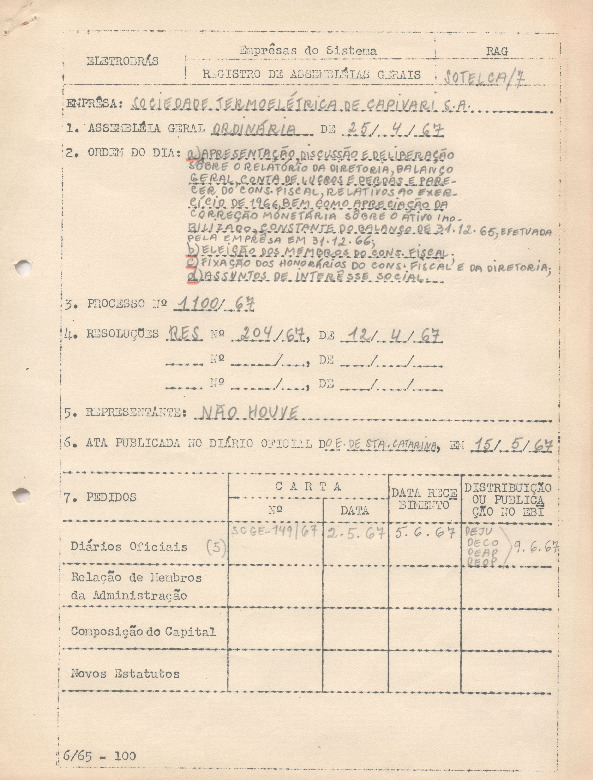 ELETROBRÁS
Emprêsas do Sistema
RAG
REGISTRO DE ASSEMBLÉIAS GERAIS
SOTELCA/7
EMPRÊSA: SOCIEDADE TERMOELÉTRICA DE CAPIVARI S.A.
1. ASSEMBLÉIA GERAL ORDINÁRIA DE 25/ 4 / 67
2. ORDEM DO DIA: a) APRESENTAÇÃO, DISCUSSÃO E DELIBERAÇÃO
SOBRE O RELATÓRIO DA DIRETORIA, BALANÇO
GERAL, CONTA DE LUCROS E PERDAS E PARE-
CER DO CONS. FISCAL, RELATIVOS AO EXER-
CÍCIO DE 1966, BEM COMO APRECIAÇÃO DA
CORREÇÃO MONETÁRIA SOBRE O ATIVO IMO-
BILIZADO, CONSTANTE DO BALANÇO DE 31.12.65, EFETUADA
PELA EMPRÊSA EM 31.12.66;
b) ELEIÇÃO DOS MEMBROS DO CONS. FISCAL;
c) FIXAÇÃO DOS HONORÁRIOS DO CONS. FISCAL E DA DIRETORIA;
d) ASSUNTOS DE INTERÊSSE SOCIAL.
3. PROCESSO Nº 1100/ 67
4. RESOLUÇÕES RES Nº 204/67, DE 12/ 4 /67
Nº / , DE / /
Nº / , DE / /
5. REPRESENTANTE: NÃO HOUVE
6. ATA PUBLICADA NO DIÁRIO OFICIAL DO E. DE STA. CATARINA, EM 15/ 5 /67
7. PEDIDOS
CARTA
Nº
DATA
DATA RECE
BIMENTO
DISTRIBUIÇÃO
OU PUBLICA
ÇÃO NO EBI
Diários Oficiais (5)
SCGE-149/67
2.5.67
5.6.67
DEJU
DECO
DEAP
DEOP
9.6.67
Relação de Membros
da Administração
Composição do Capital
Novos Estatutos
6/65 - 100